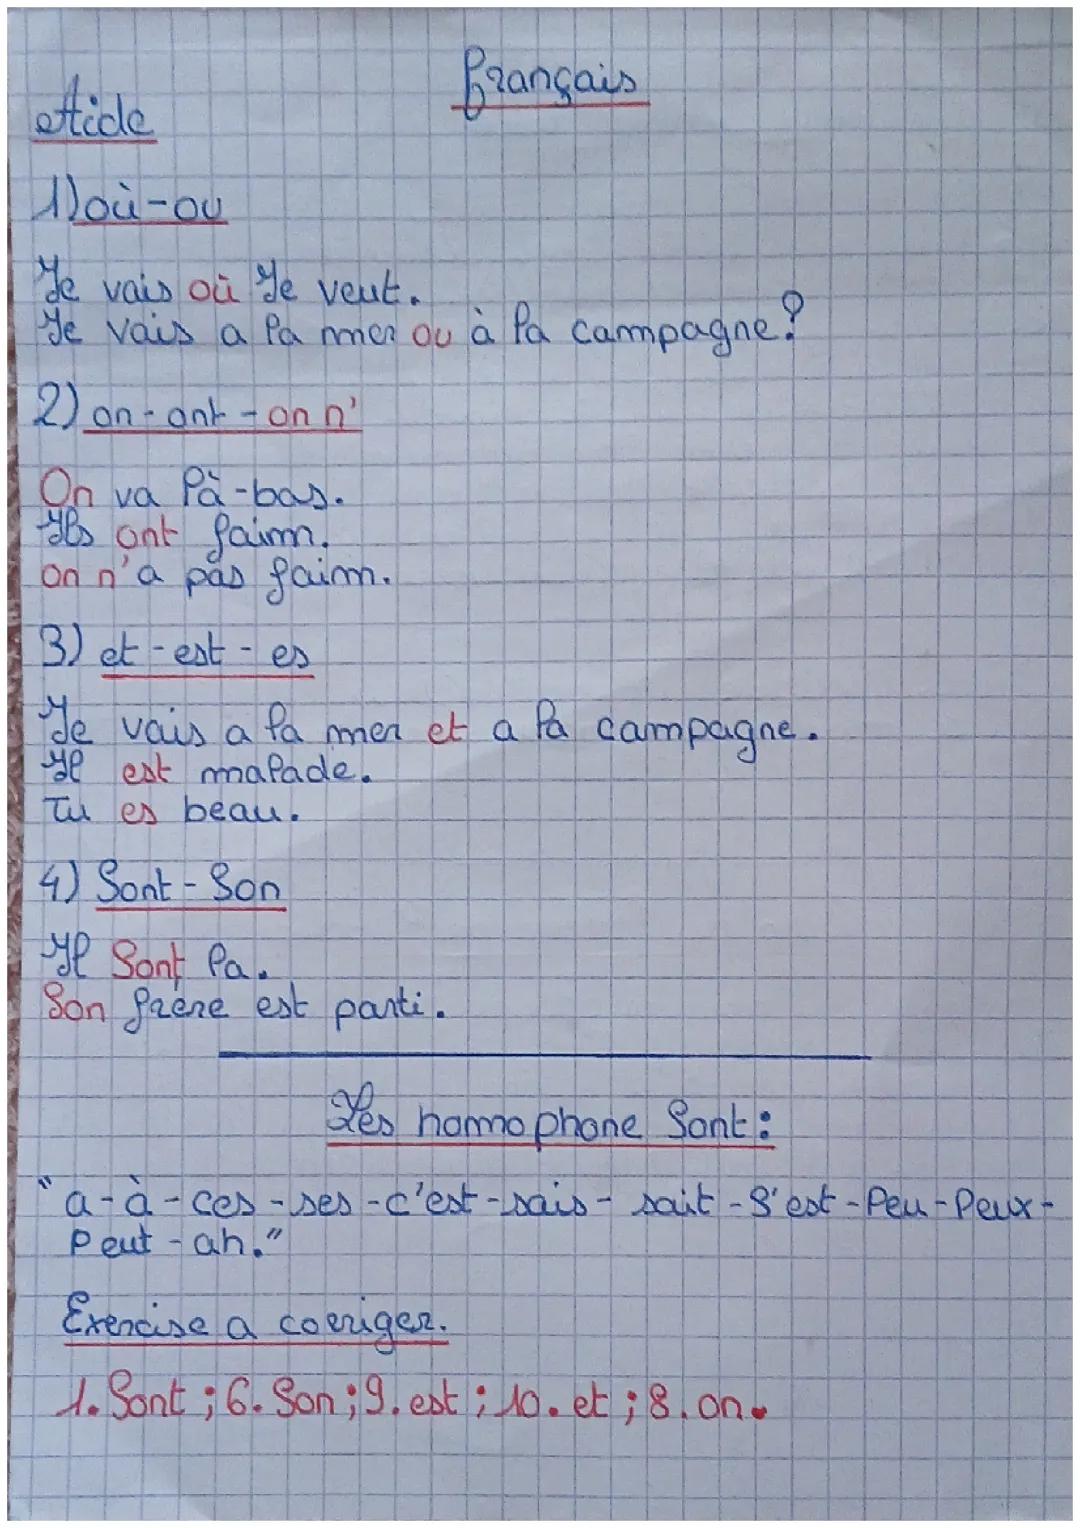 Français
Aticle
1) où-ou
Je vais où Je veut.
Je vais a la mer ou à la campagne?
2) on - ont - on n'
On va là-bas.
Ils ont faim.
on n'a pas faim.
3) et - est - es
Je vais a la mer et a la campagne.
Il est malade.
Tu es beau.
4) Sont - Son
Il Sont la.
Son frère est parti.
Les homophone Sont:
"a-à-ces-ses-c'est-sais-sait-S'est-Peu-Peux-
Peut-ah."
Exercise a corriger.
1. Sont; 6. Son; 9. est; 10. et; 8. on.